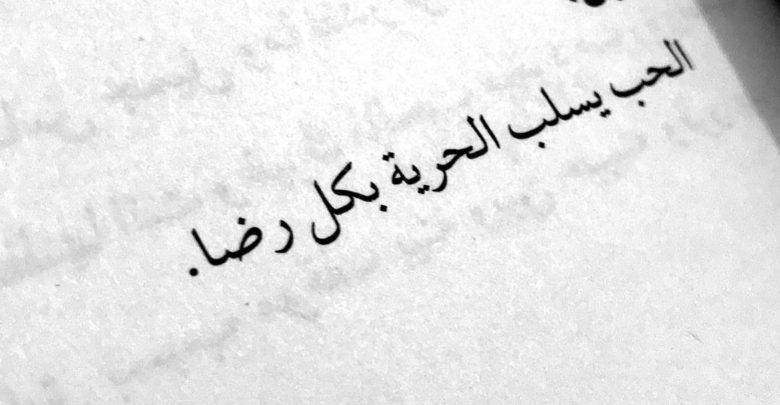 الحب يسلب الحرية بكل رضا.